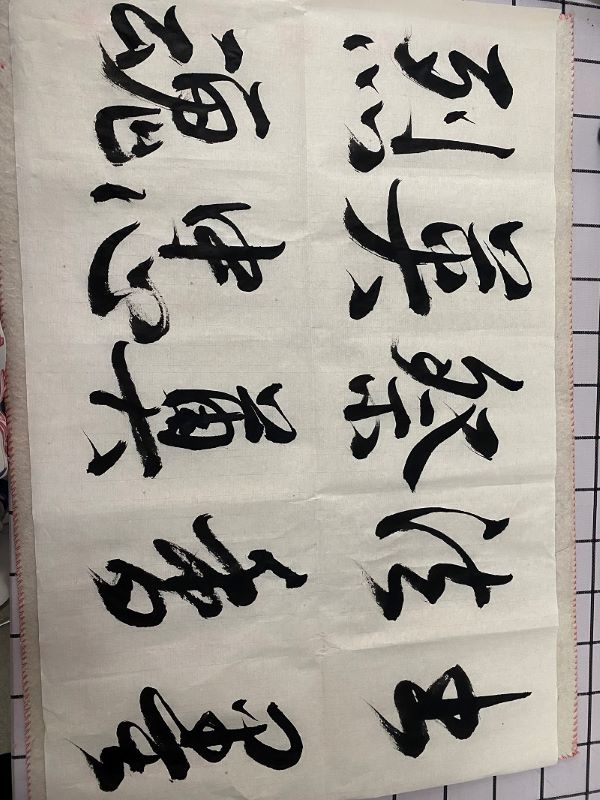 书法祭英烈
墨香奠忠魂